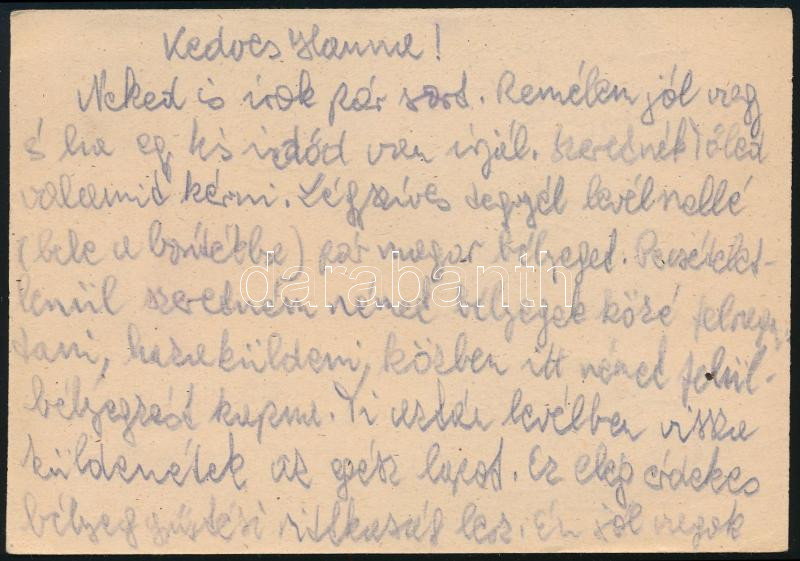 Kedves Hanna!
Neked is irok pár sort. Remélem jól vagy
s ha egy kis időd van irjál. Szeretnék Tőled
valamit kérni. Légszives tegyél levél mellé
(bele a boritékba) pár magyar bélyeget. Pecsételet-
lenül szeretném német bélyegek közé felragasz-
tani, hazaküldeni, közben itt német felül-
bélyegzést kapna. Ti aztán levélben vissza
küldenétek az egész lapot. Ez elég érdekes
bélyeggyűjtési ritkaság lesz. Én jól vagyok
darabanth